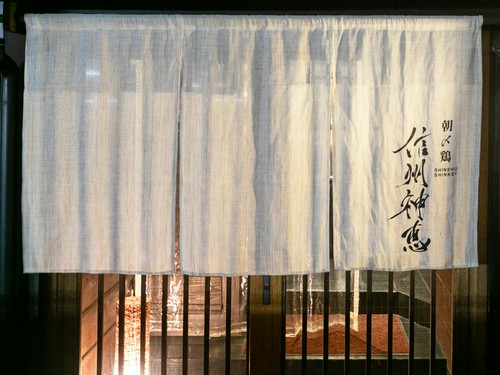 朝〆鶏
SHINSHU
SHINKEI
信州神恵